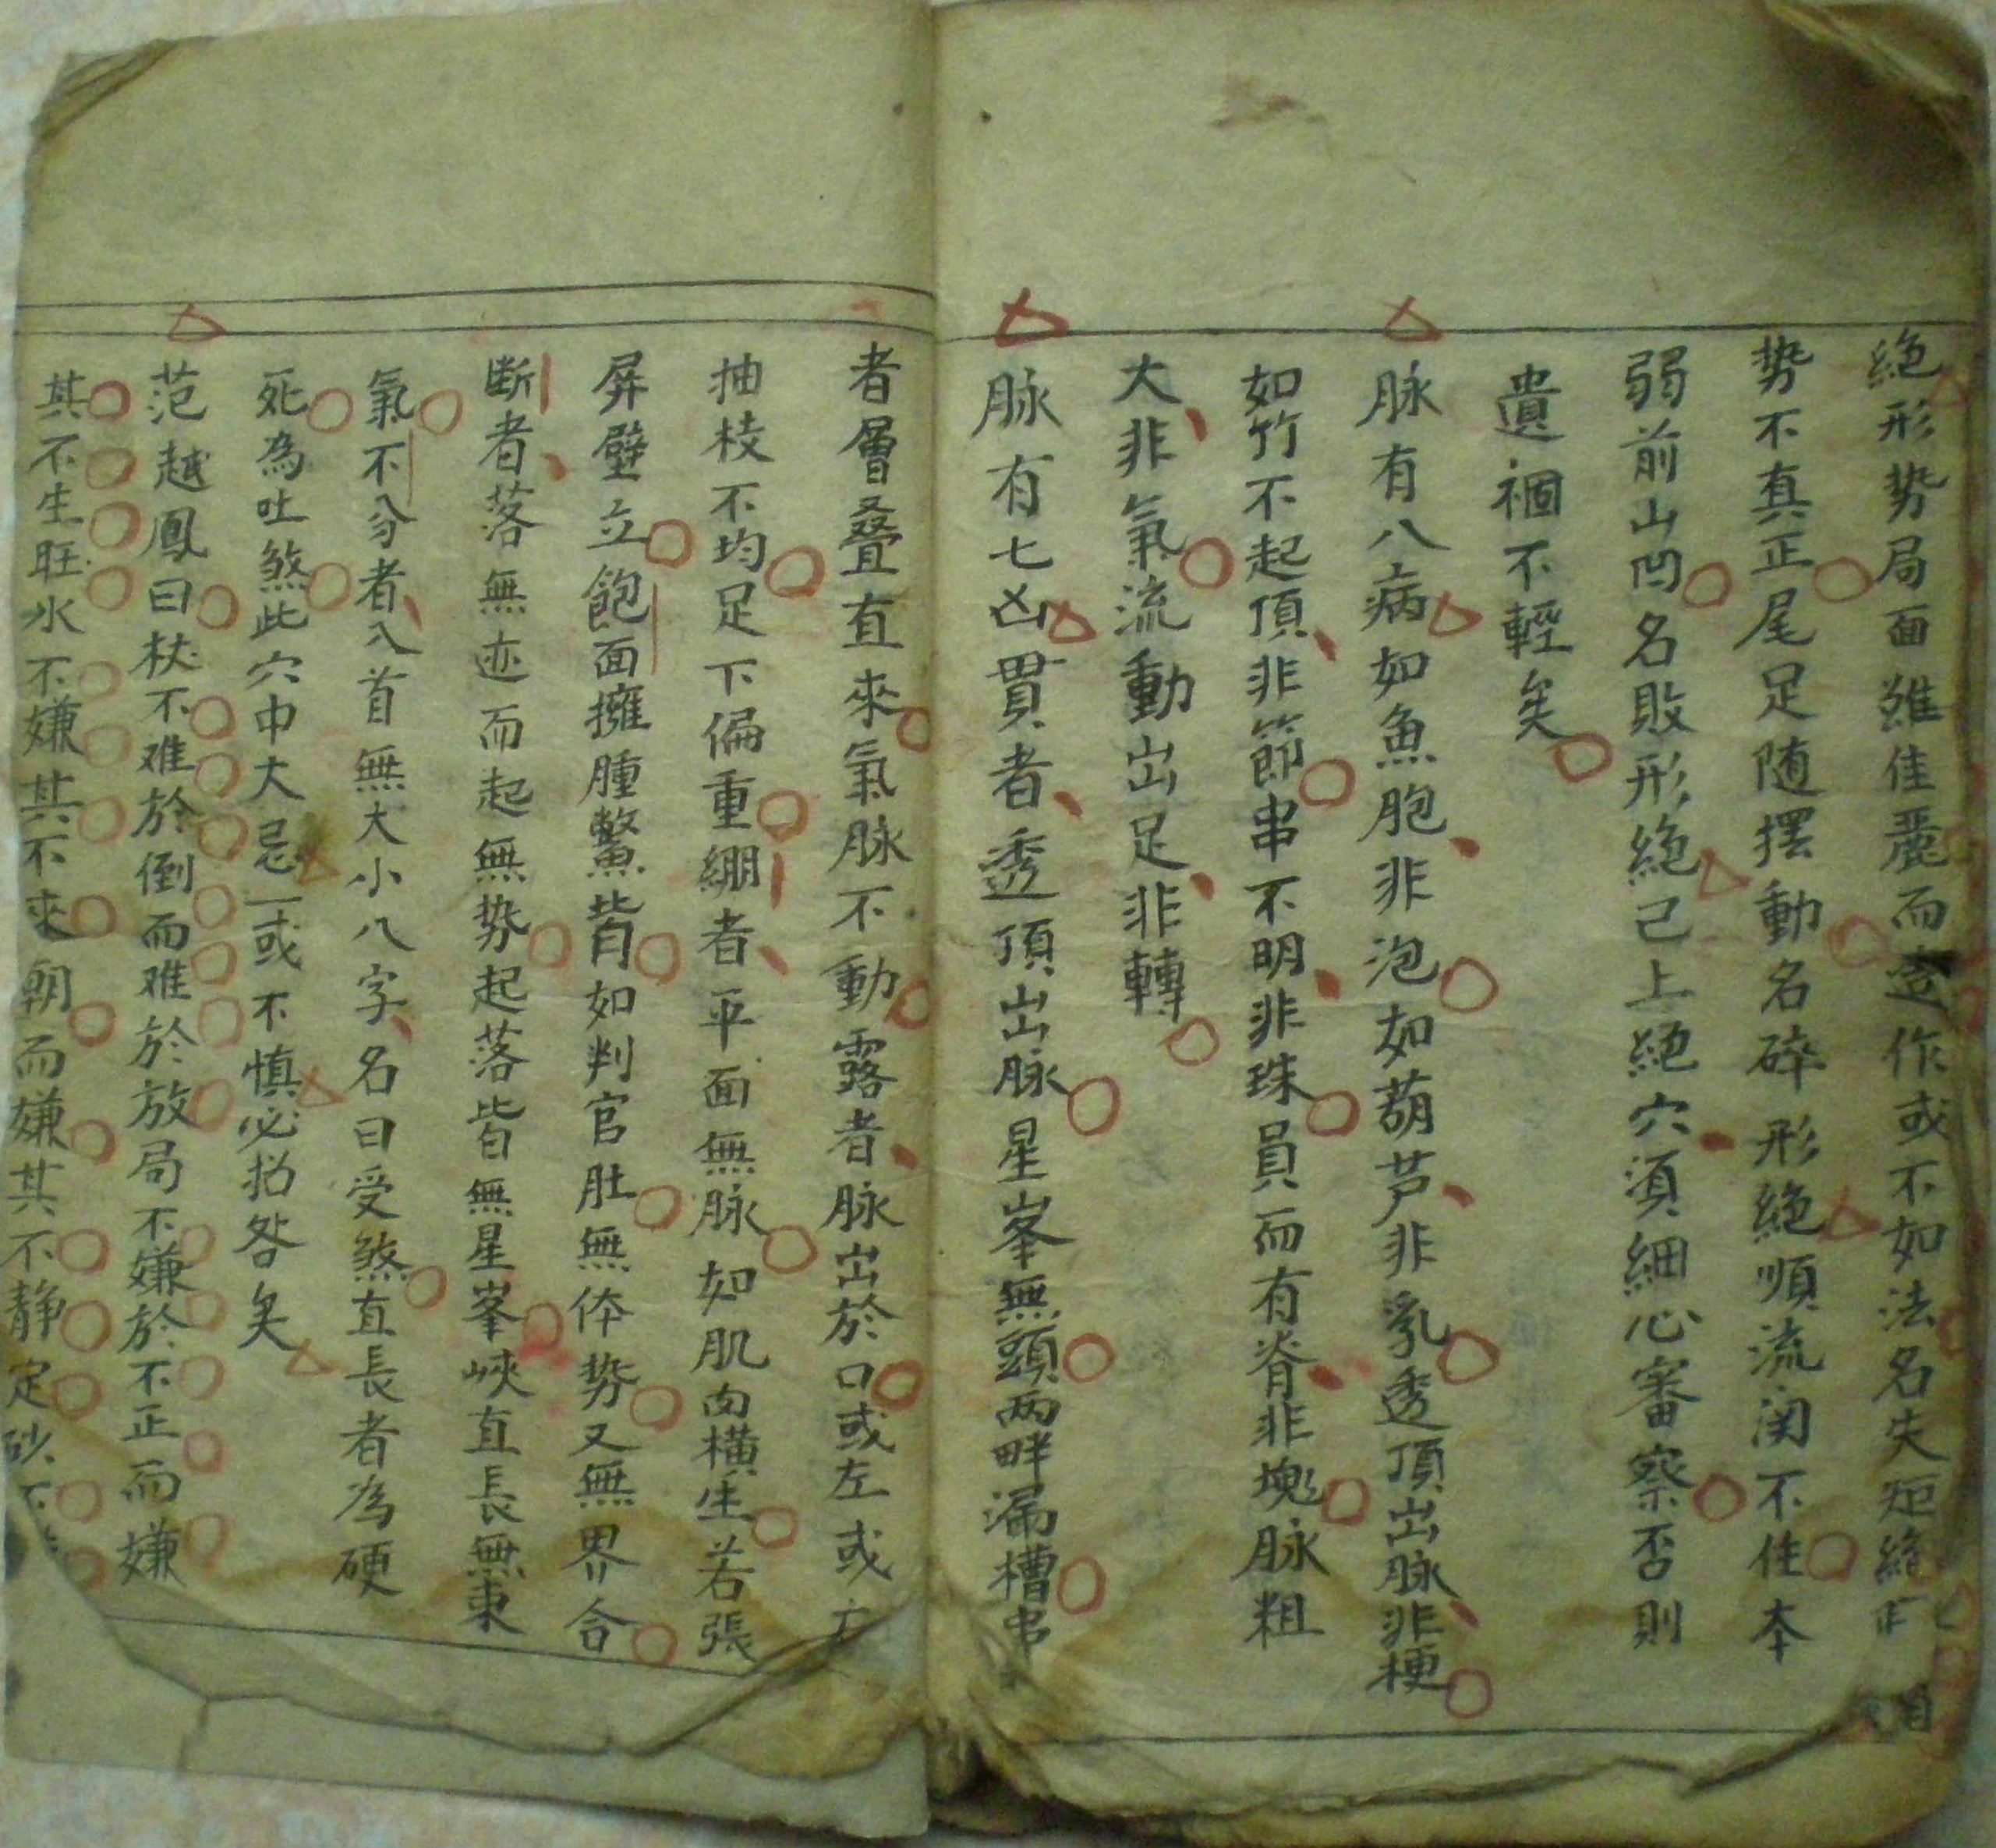 絕形势局面雖佳麗而造作或不如法名失矩絕
势不真正尾足随摆動名碎形絕順流関不住本
弱前山凹名敗形絕己上絕穴須細心審察否則
遺祸不輕矣
脉有八病如魚胞非泡如葫芦非乳透頂出脉非梗
如竹不起頂非節串不明非珠員而有脊非塊脉粗
大非氣流動出足非轉
脉有七凶貫者透頂出脉星峯無頭两畔漏槽串
者層叠直來氣脉不動露者脉出於口或左或
抽枝不均足下偏重綳者平面無脉如肌肉橫生若張
屏壁立飽面擁腫鱉背如判官肚無体势又無界合
断者落無迹而起無势起落皆無星峯峽直長無束
氣不分者入首無大小八字名曰受煞直長者為硬
死為吐煞此穴中大忌一或不慎必招咎矣
范越鳳曰杖不难於倒而难於放局不嫌於不正而嫌
其不生旺水不嫌其不來朝而嫌其不静定砂不